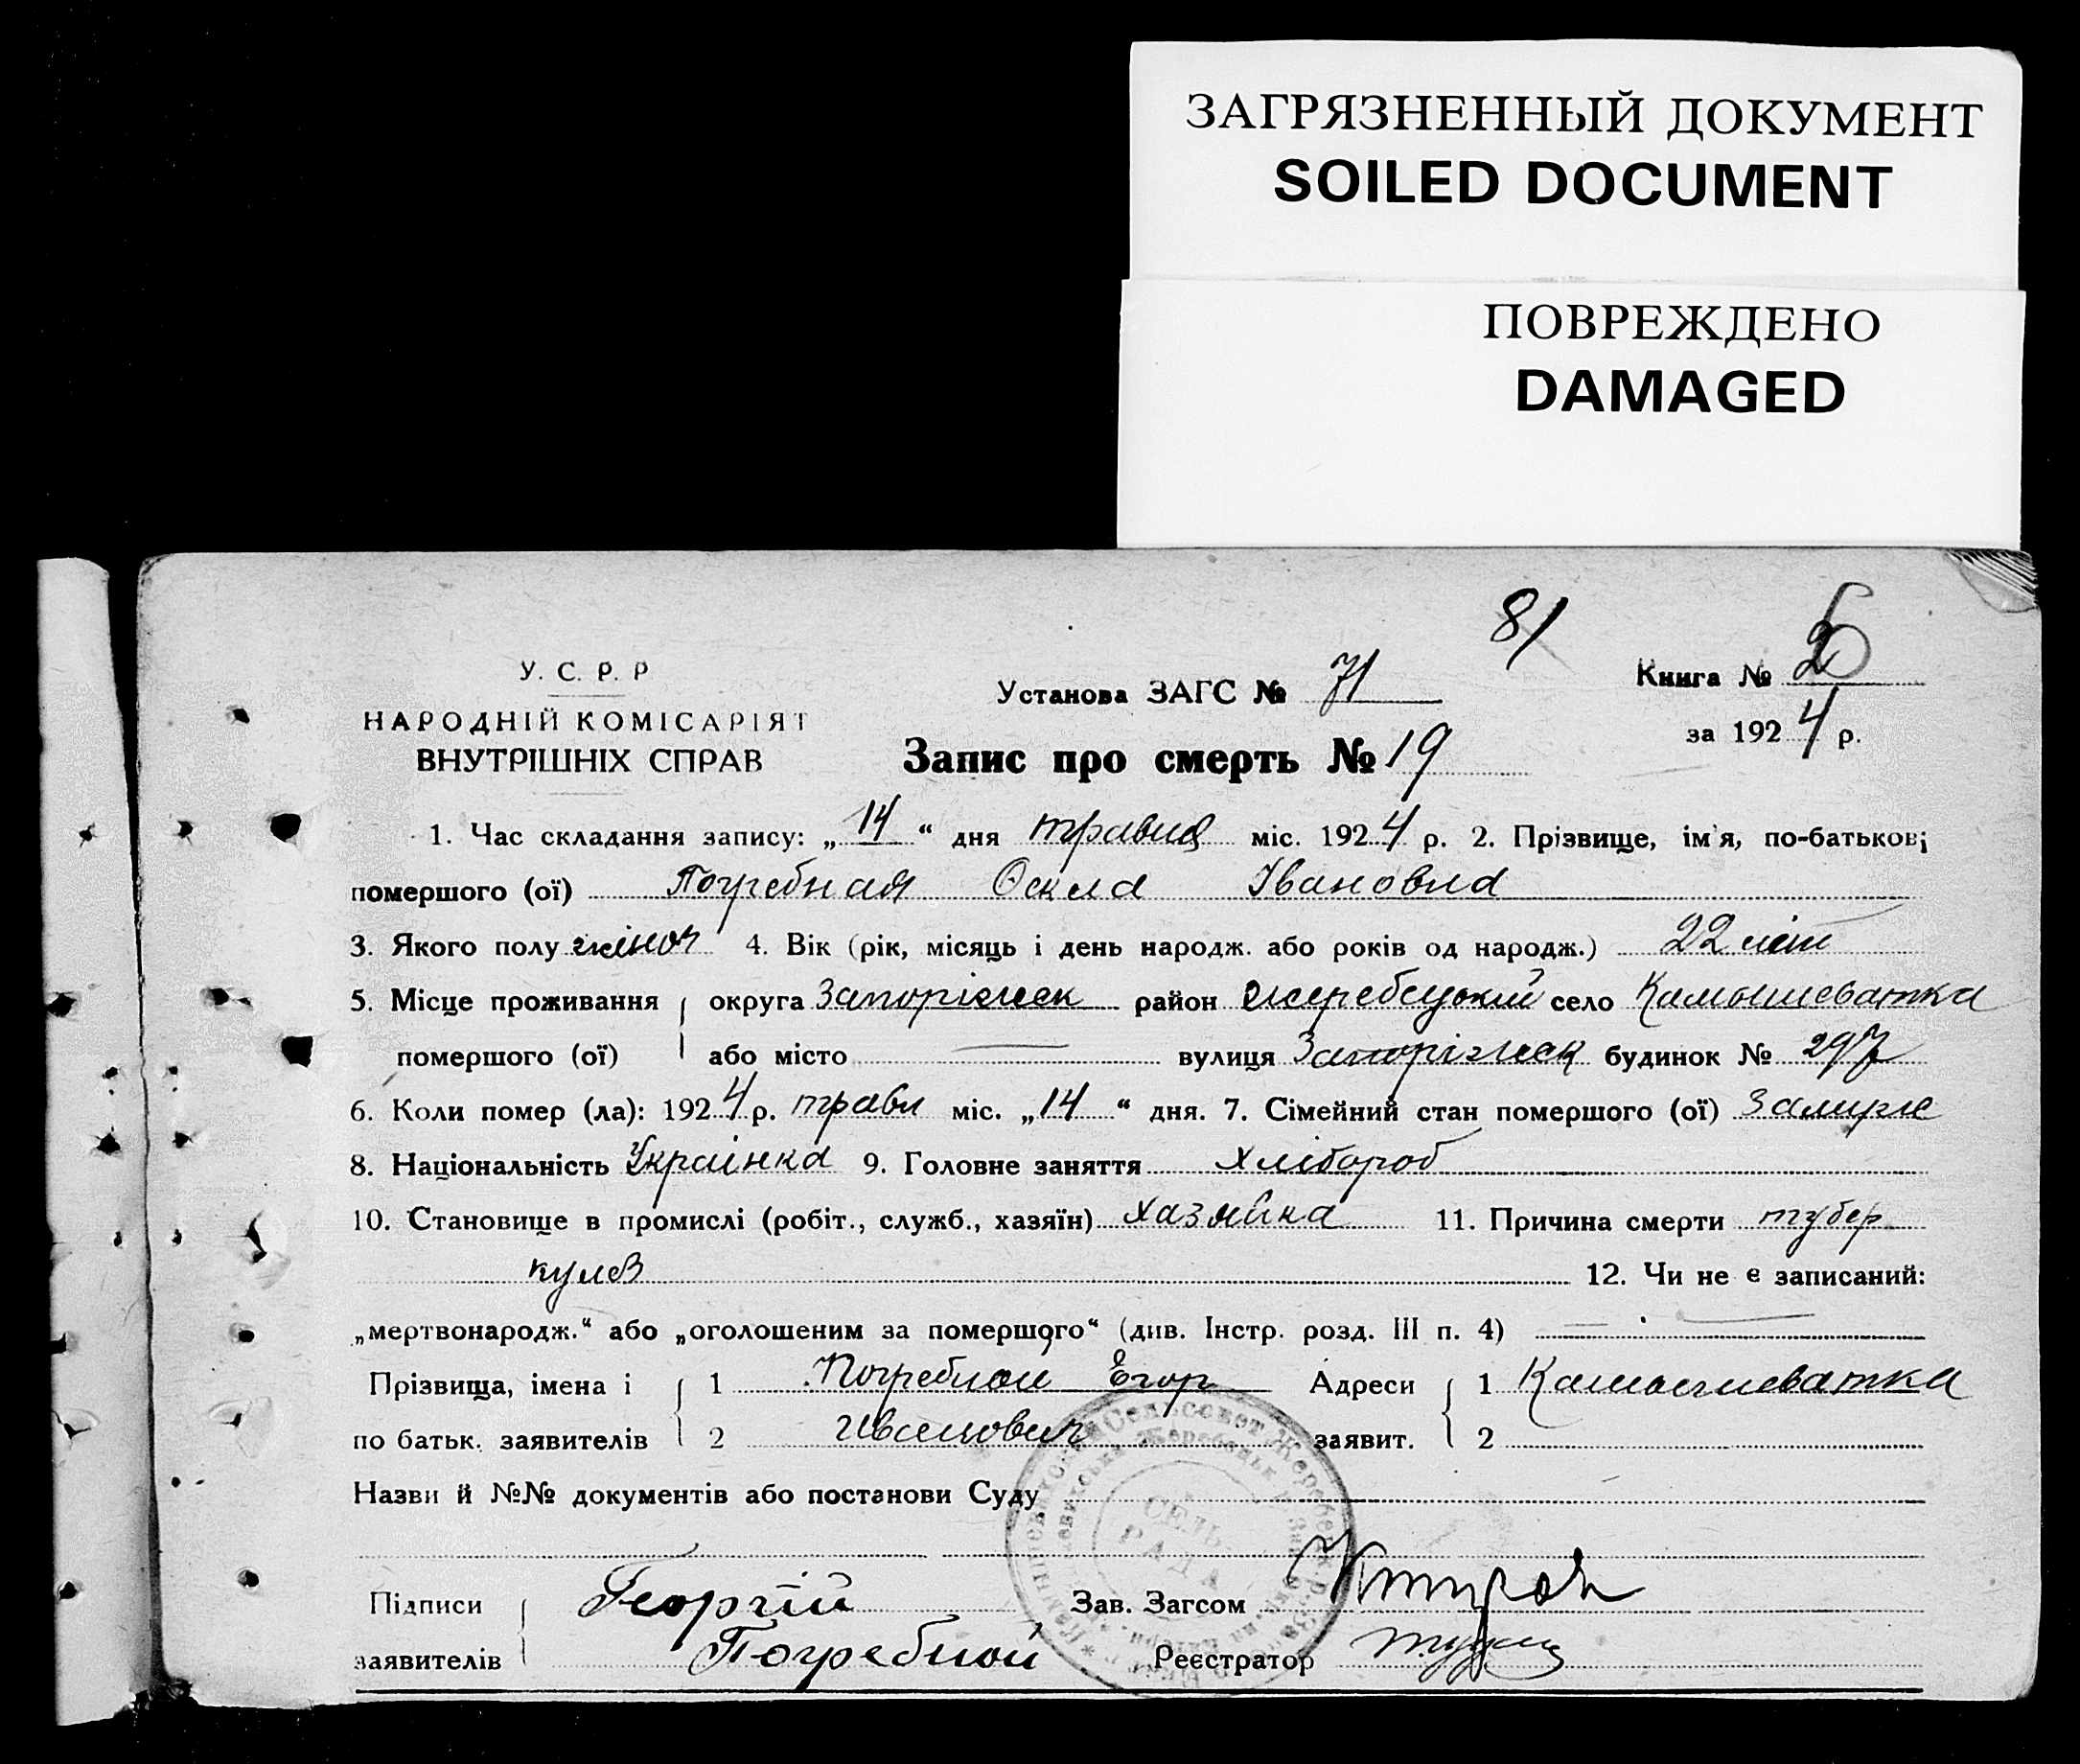 ЗАГРЯЗНЕННЫЙ ДОКУМЕНТ
SOILED DOCUMENT
ПОВРЕЖДЕНО
DAMAGED
81
У. С. Р. Р
НАРОДНІЙ КОМІСАРІЯТ
ВНУТРІШНІХ СПРАВ
Установа ЗАГС № 71
Книга № 2
за 1924 р.
Запис про смерть № 19
1. Час складання запису: „14“ дня травня міс. 1924 р. 2. Прізвище, ім'я, по-батькові
помершого (ої) Погребная Фекла Івановна
3. Якого полу жіноч 4. Вік (рік, місяць і день народж. або років од народж.) 22 літ
5. Місце проживання округа Запоріжск район Жеребецький село Камышеватка
помершого (ої) або місто — вулиця Запоріжск будинок № 297
6. Коли помер (ла): 1924 р. травн міс. „14“ дня. 7. Сімейний стан помершого (ої) Замуж
8. Національність Українка 9. Головне заняття Хлібороб
10. Становище в промислі (робіт., служб., хазяїн) Хазяйка 11. Причина смерти тубер
кулез 12. Чи не є записаний:
„мертвонародж.“ або „оголошеним за померщого“ (див. Інстр. розд. III п. 4) —
Прізвища, імена і 1 Погребной Егор Адреси 1 Камышеватка
по батьк. заявителів 2 Иванович заявит. 2
Назви й №№ документів або постанови Суду
СЕЛЬ-
РАДА
Підписи Георгій Зав. Загсом
заявителів Погребной Реєстратор